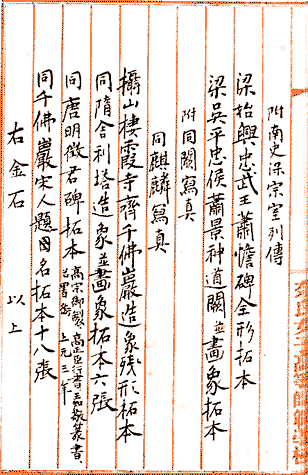 附南史梁宗室列傳
梁始興忠武王蕭憺碑全形拓本
梁吳平忠侯蕭景神道闕並畫象拓本
附同闕寫真
同麒麟寫真
攝山棲霞寺齊千佛巖造象殘形拓本
同隋舍利塔造象並畫象拓本六張
同唐明徵君碑拓本 高宗御製 高正臣行書 王知敬篆書 上元三年
同千佛巖宋人題名拓本十八張
右金石 以上